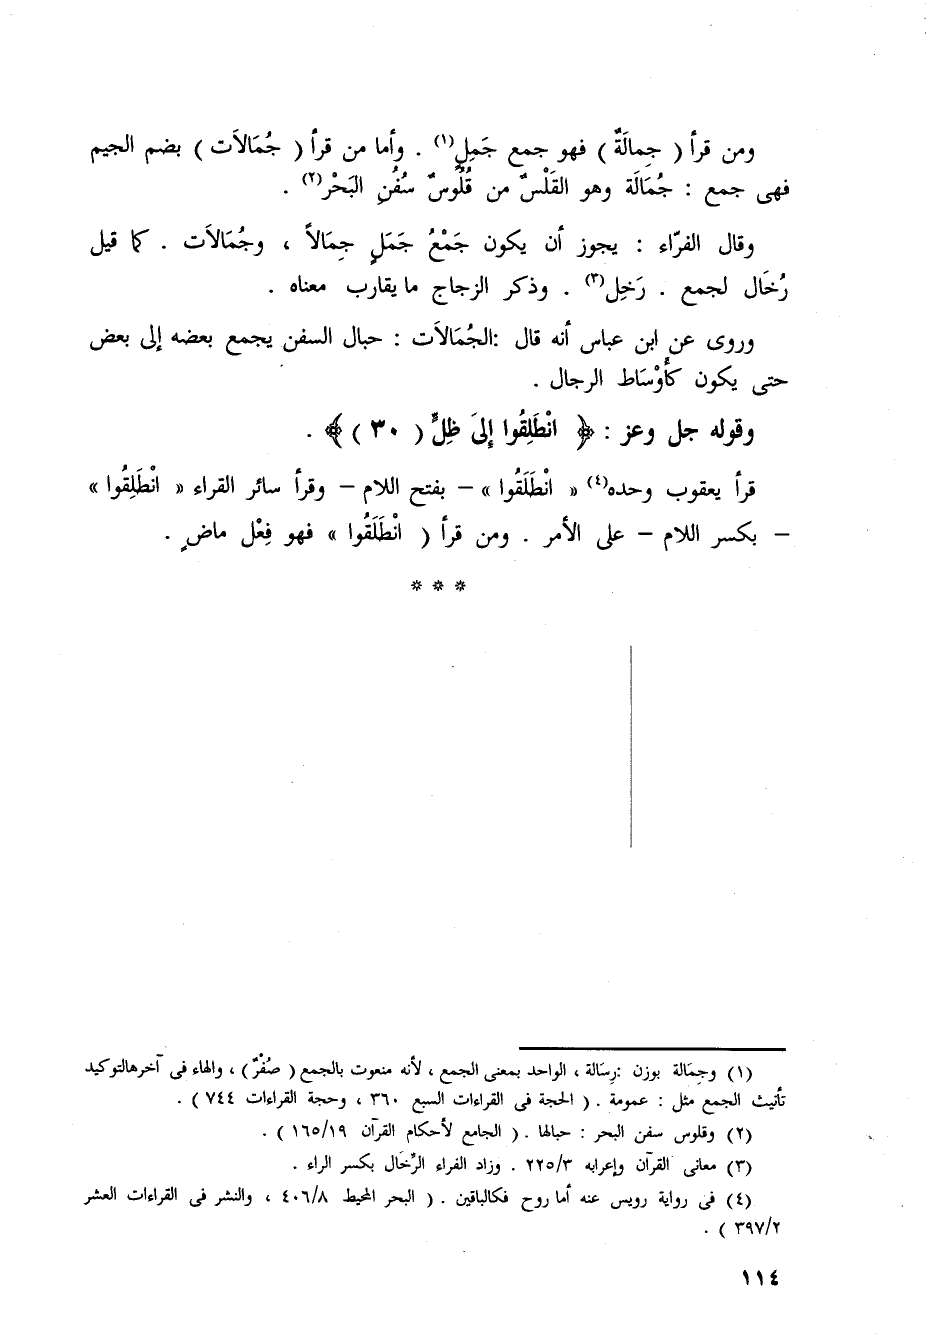 ومن قرأ ( جِمالَةٌ ) فهو جمع جَمَلٍ(١) . وأما من قرأ ( جُمَالاَت ) بضم الجيم
فهى جمع : جُمَالَة وهو القَلْسٌ من قُلُوسٌ سُفُنِ البَحْرْ(٢) .
وقال الفرّاء : يجوز أن يكون جَمْعُ جَمَلٍ جِمَالاً ، وجُمَالاَت . كما قيل
رُخَال لجمع . رَخِل(٣) . وذكر الزجاج ما يقارب معناه .
وروى عن ابن عباس أنه قال :الجُمَالاَت : حبال السفن يجمع بعضه إلى بعض
حتى يكون كأَوْسَاط الرجال .
وقوله جل وعز : ﴿ انْطَلِقُوا إِلىَ ظِلٍّ ( ٣٠ ) ﴾ .
قرأ يعقوب وحده(٤) « انْطَلَقُوا » – بفتح اللام – وقرأ سائر القراء « انْطَلِقُوا »
– بكسر اللام – على الأمر . ومن قرأ ( انْطَلَقُوا » فهو فِعْل ماضٍ .
* * *
(١) وجِمَالة بوزن :رِسَالة ، الواحد بمعنى الجمع ، لأنه منعوت بالجمع ( صُفْرٌ ) ، والهاء فى آخرهالتوكيد
تأنيث الجمع مثل : عمومة . ( الحجة فى القراءات السبع ٣٦٠ ، وحجة القراءات ٧٤٤ ) .
(٢) وقلوس سفن البحر : حبالها . ( الجامع لأحكام القرآن ١٦٥/١٩ ) .
(٣) معانى القرآن وإعرابه ٢٢٥/٣ . وزاد الفراء الرِّخَال بكسر الراء .
(٤) فى رواية رويس عنه أما روح فكالباقين . ( البحر المحيط ٤٠٦/٨ ، والنشر فى القراءات العشر
٣٩٧/٢ ) .
١١٤